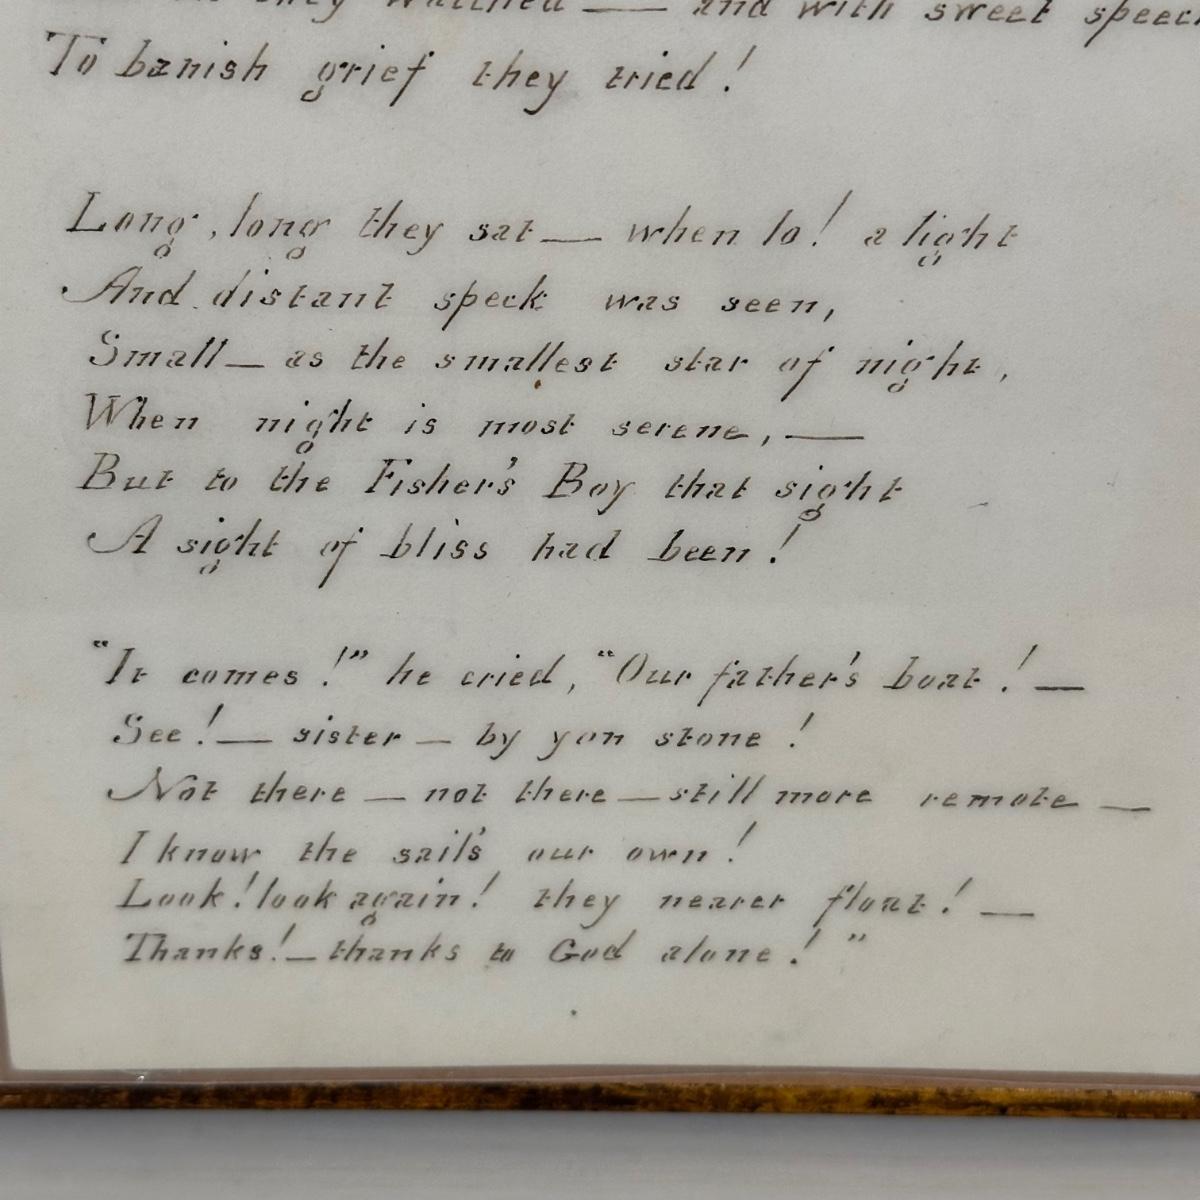 they watched — and with sweet speech
To banish grief they tried!
Long, long they sat — when lo! a light
And distant speck was seen,
Small — as the smallest star of night,
When night is most serene, —
But to the Fisher's Boy that sight
A sight of bliss had been!
"It comes!" he cried, "Our father's boat! —
See! — sister — by yon stone!
Not there — not there — still more remote —
I know the sail's our own!
Look! look again! they nearer float! —
Thanks! — thanks to God alone!"